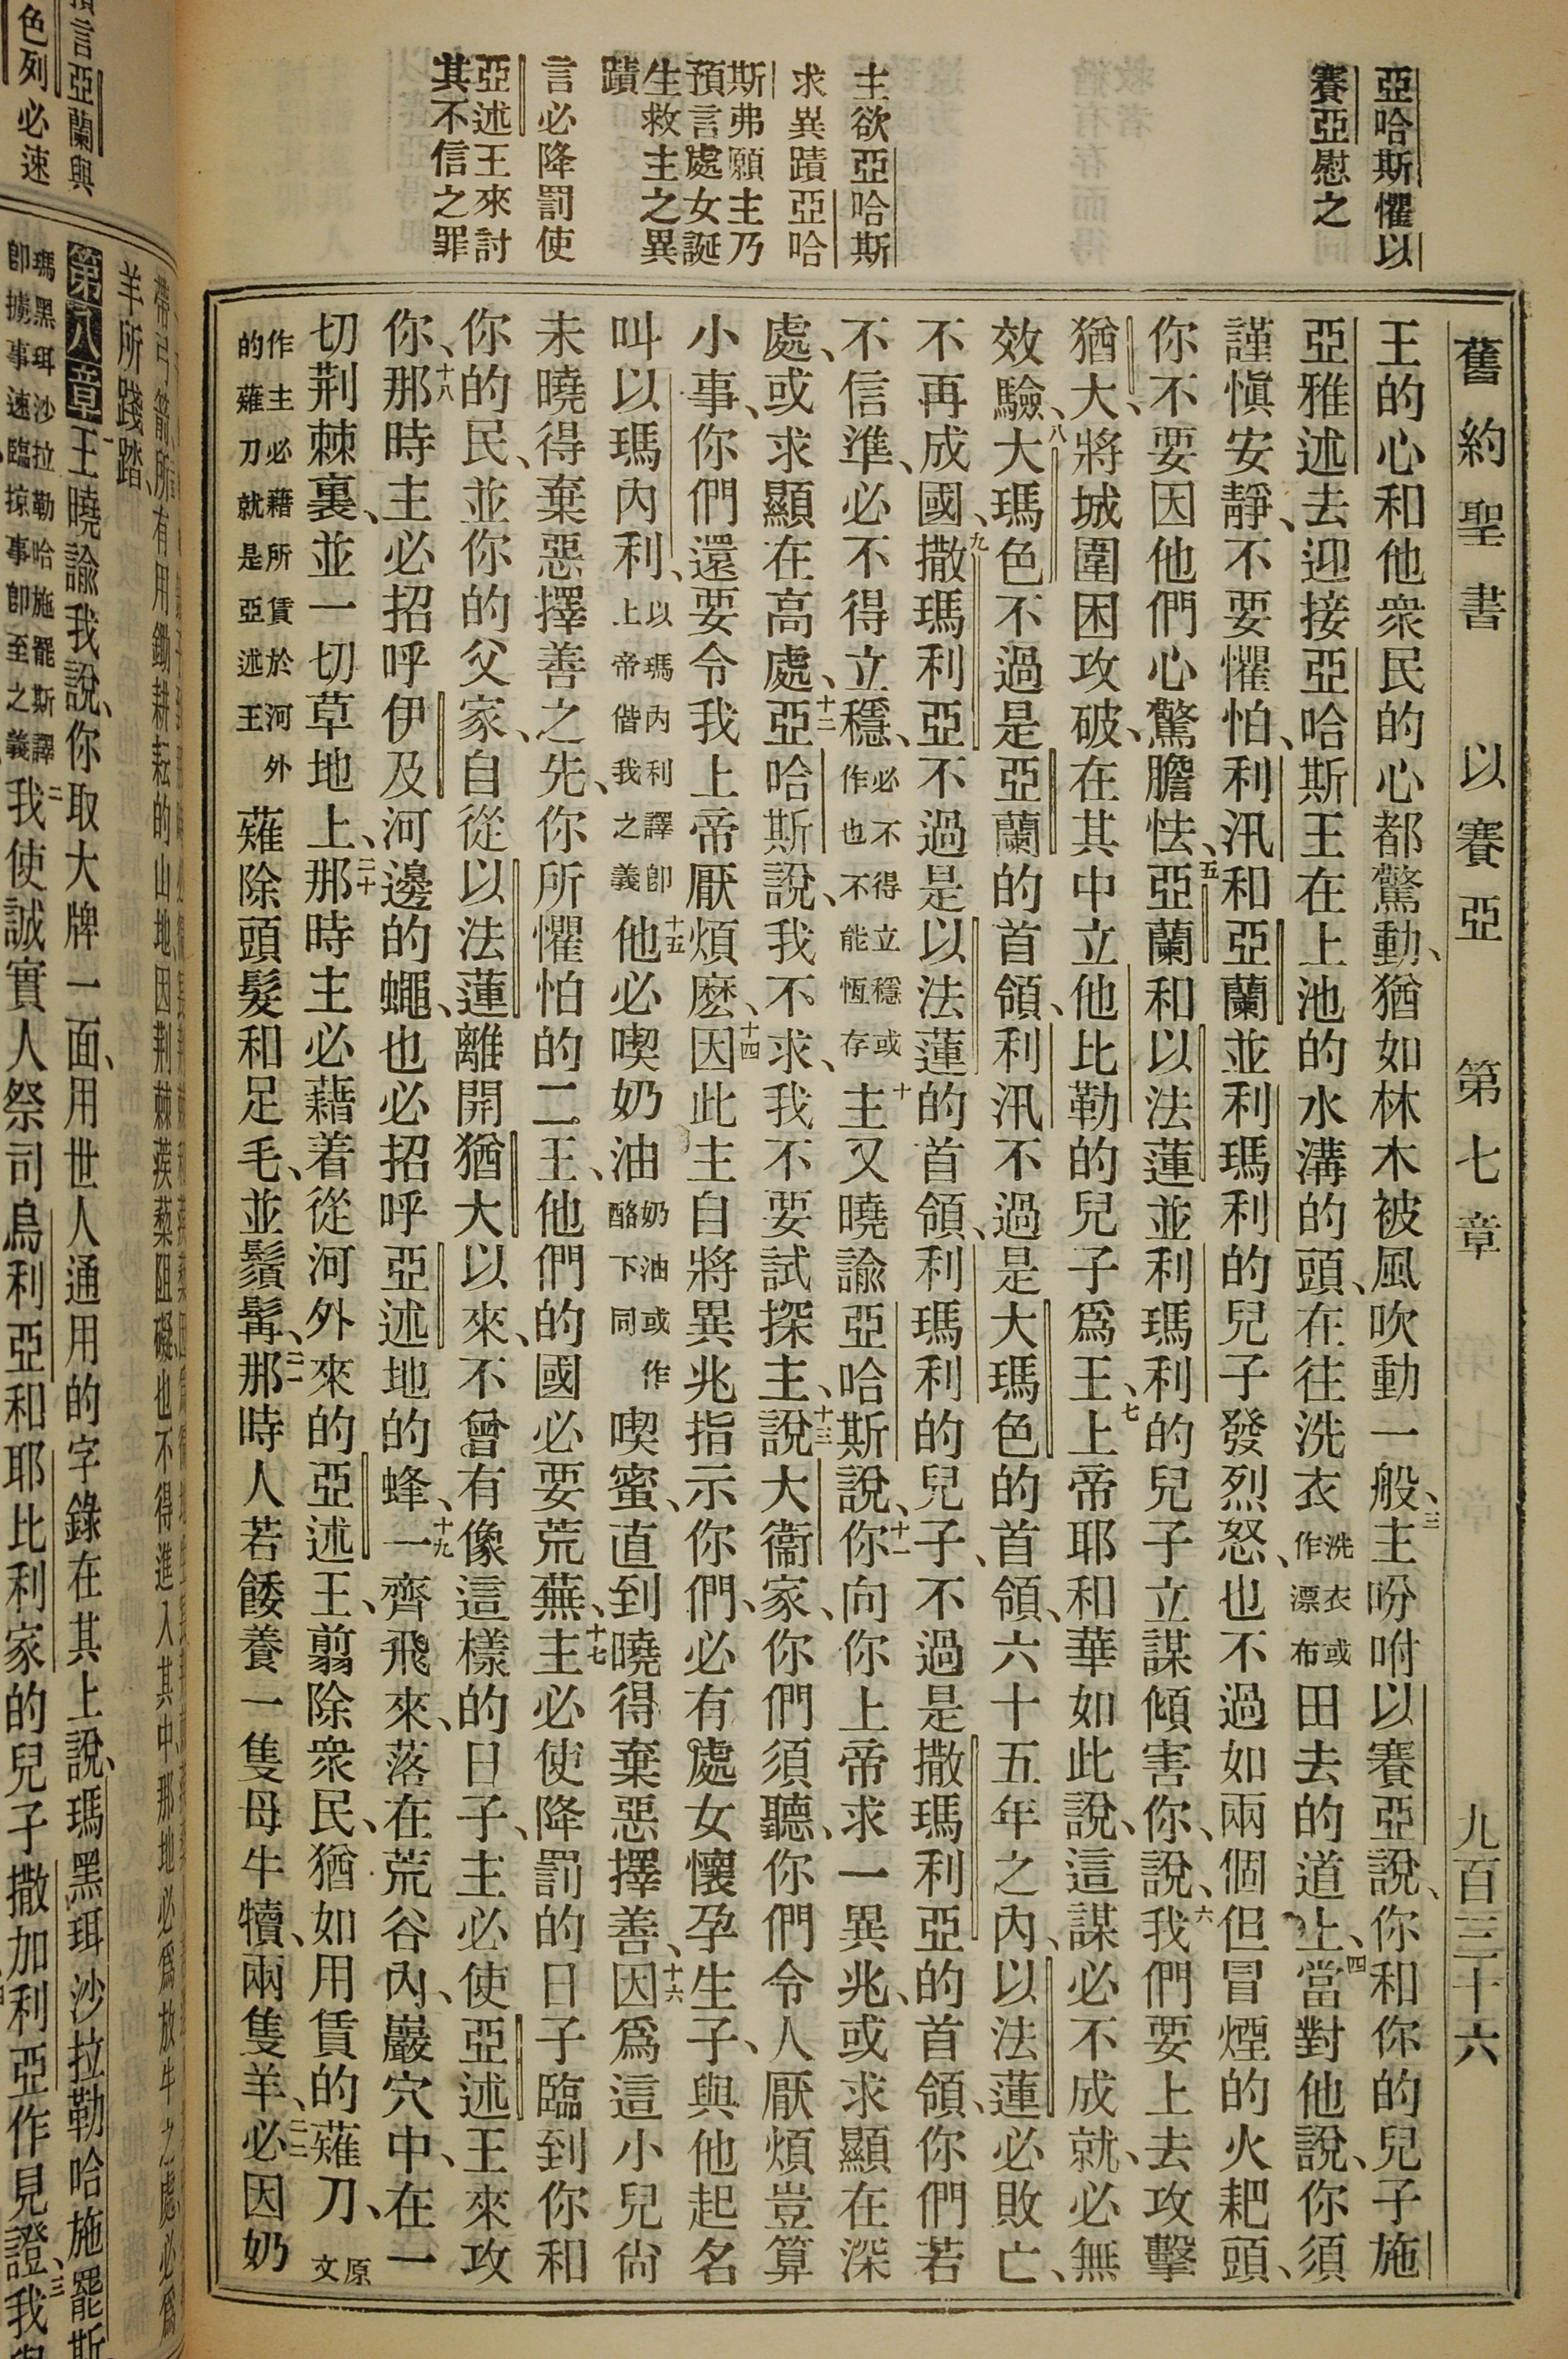 舊約聖書 以賽亞 第七章 九百三十六
亞哈斯懼以
賽亞慰之
主欲亞哈斯
求異蹟亞哈
斯弗願主乃
預言處女誕
生救主之異
蹟
言必降罰使
亞述王來討
其不信之罪
王的心和他衆民的心都驚動、猶如林木被風吹動一般、三主吩咐以賽亞說、你和你的兒子施
亞雅述去迎接亞哈斯王在上池的水溝的頭、在往洗衣洗衣或作漂布田去的道上、四當對他說、你須
謹愼安靜、不要懼怕、利汛和亞蘭並利瑪利的兒子發烈怒、也不過如兩個但冒煙的火耙頭、
你不要因他們心驚膽怯、五亞蘭和以法蓮並利瑪利的兒子立謀傾害你、說、六我們要上去攻擊
猶大、將城圍困攻破、在其中立他比勒的兒子爲王、七上帝耶和華如此說、這謀必不成就、必無
效驗、八大瑪色不過是亞蘭的首領、利汛不過是大瑪色的首領、六十五年之內、以法蓮必敗亡、
不再成國、九撒瑪利亞不過是以法蓮的首領、利瑪利的兒子、不過是撒瑪利亞的首領、你們若
不信準、必不得立穩、必不得立穩或作也不能恆存十主又曉諭亞哈斯說、十一你向你上帝求一異兆、或求顯在深
處、或求顯在高處、十二亞哈斯說、我不求、我不要試探主、十三說大衞家、你們須聽、你們令人厭煩豈算
小事、你們還要令我上帝厭煩麽、十四因此主自將異兆指示你們、必有處女懷孕生子、與他起名
叫以瑪內利、以瑪內利譯卽上帝偕我之義十五他必喫奶油奶油或作酪下同喫蜜、直到曉得棄惡擇善、十六因爲這小兒尙
未曉得棄惡擇善之先、你所懼怕的二王、他們的國必要荒蕪、十七主必使降罰的日子臨到你和
你的民、並你的父家、自從以法蓮離開猶大以來、不曾有像這樣的日子、主必使亞述王來攻
你、十八那時主必招呼伊及河邊的蠅、也必招呼亞述地的蜂、十九一齊飛來、落在荒谷內、巖穴中、在一
切荆棘裏、並一切草地上、二十那時主必藉着從河外來的亞述王、翦除衆民、猶如用賃的薙刀、原文
作主必藉所賃於河外的薙刀就是亞述王薙除頭髮和足毛、並鬚髯、二一那時人若餧養一隻母牛犢、兩隻羊、二二必因奶
言亞蘭與
色列必速
羊所踐踏、
第八章一王曉諭我說、你取大牌一面、用世人通用的字錄在其上說、瑪黑珥沙拉勒哈施罷斯
瑪黑珥沙拉勒哈施罷斯譯卽擄事速臨掠事卽至之義二我使誠實人祭司烏利亞和耶比利家的兒子撒加利亞作見證、三我